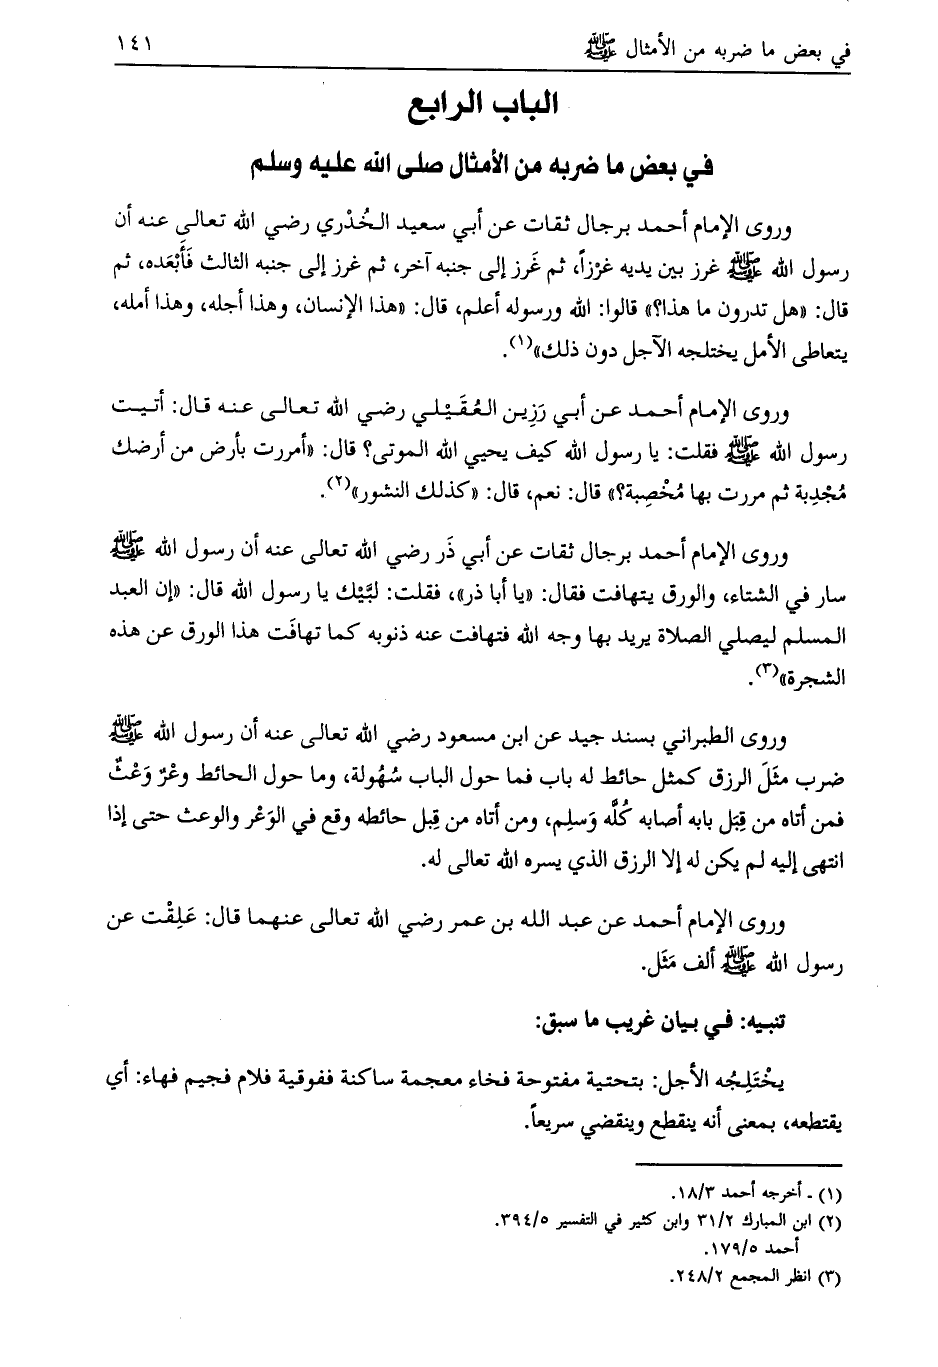 في بعض ما ضربه من الأمثال ﷺ ١٤١
الباب الرابع
في بعض ما ضربه من الأمثال صلى الله عليه وسلم
وروى الإمام أحمد برجال ثقات عن أبي سعيد الخُدْري رضي الله تعالى عنه أن
رسول الله ﷺ غرز بين يديه غرْزاً، ثم غَرز إلى جنبه آخر، ثم غرز إلى جنبه الثالث فَأَبْعَده، ثم
قال: «هل تدرون ما هذا؟» قالوا: الله ورسوله أعلم، قال: «هذا الإنسان، وهذا أجله، وهذا أمله،
يتعاطى الأمل يختلجه الآجل دون ذلك»(١).
وروى الإمام أحمد عن أبي رَزِين العُقَيْلي رضي الله تعالى عنه قال: أتيت
رسول الله ﷺ فقلت: يا رسول الله كيف يحيي الله الموتى؟ قال: «أمررت بأرض من أرضك
مُجْدِبة ثم مررت بها مُخْصِبة؟» قال: نعم، قال: «كذلك النشور»(٢).
وروى الإمام أحمد برجال ثقات عن أبي ذَر رضي الله تعالى عنه أن رسول الله ﷺ
سار في الشتاء، والورق يتهافت فقال: «يا أبا ذر»، فقلت: لبَّيْك يا رسول الله قال: «إن العبد
المسلم ليصلي الصلاة يريد بها وجه الله فتهافت عنه ذنوبه كما تهافَت هذا الورق عن هذه
الشجرة»(٣).
وروى الطبراني بسند جيد عن ابن مسعود رضي الله تعالى عنه أن رسول الله ﷺ
ضرب مثَلَ الرزق كمثل حائط له باب فما حول الباب سُهُولة، وما حول الحائط وعْرٌ وَعْثٌ
فمن أتاه من قِبَل بابه أصابه كُلَّه وَسلِم، ومن أتاه من قِبل حائطه وقع في الوَعْر والوعث حتى إذا
انتهى إليه لم يكن له إلا الرزق الذي يسره الله تعالى له.
وروى الإمام أحمد عن عبد الله بن عمر رضي الله تعالى عنهما قال: عَلِقْت عن
رسول الله ﷺ ألف مَثَل.
تنبيه: في بيان غريب ما سبق:
يخْتَلِجُه الأجل: بتحتية مفتوحة فخاء معجمة ساكنة ففوقية فلام فجيم فهاء: أي
يقتطعه، بمعنى أنه ينقطع وينقضي سريعاً.
(١) ـ أخرجه أحمد ١٨/٣.
(٢) ابن المبارك ٣١/٢ وابن كثير في التفسير ٣٩٤/٥.
أحمد ١٧٩/٥.
(٣) انظر المجمع ٢٤٨/٢.